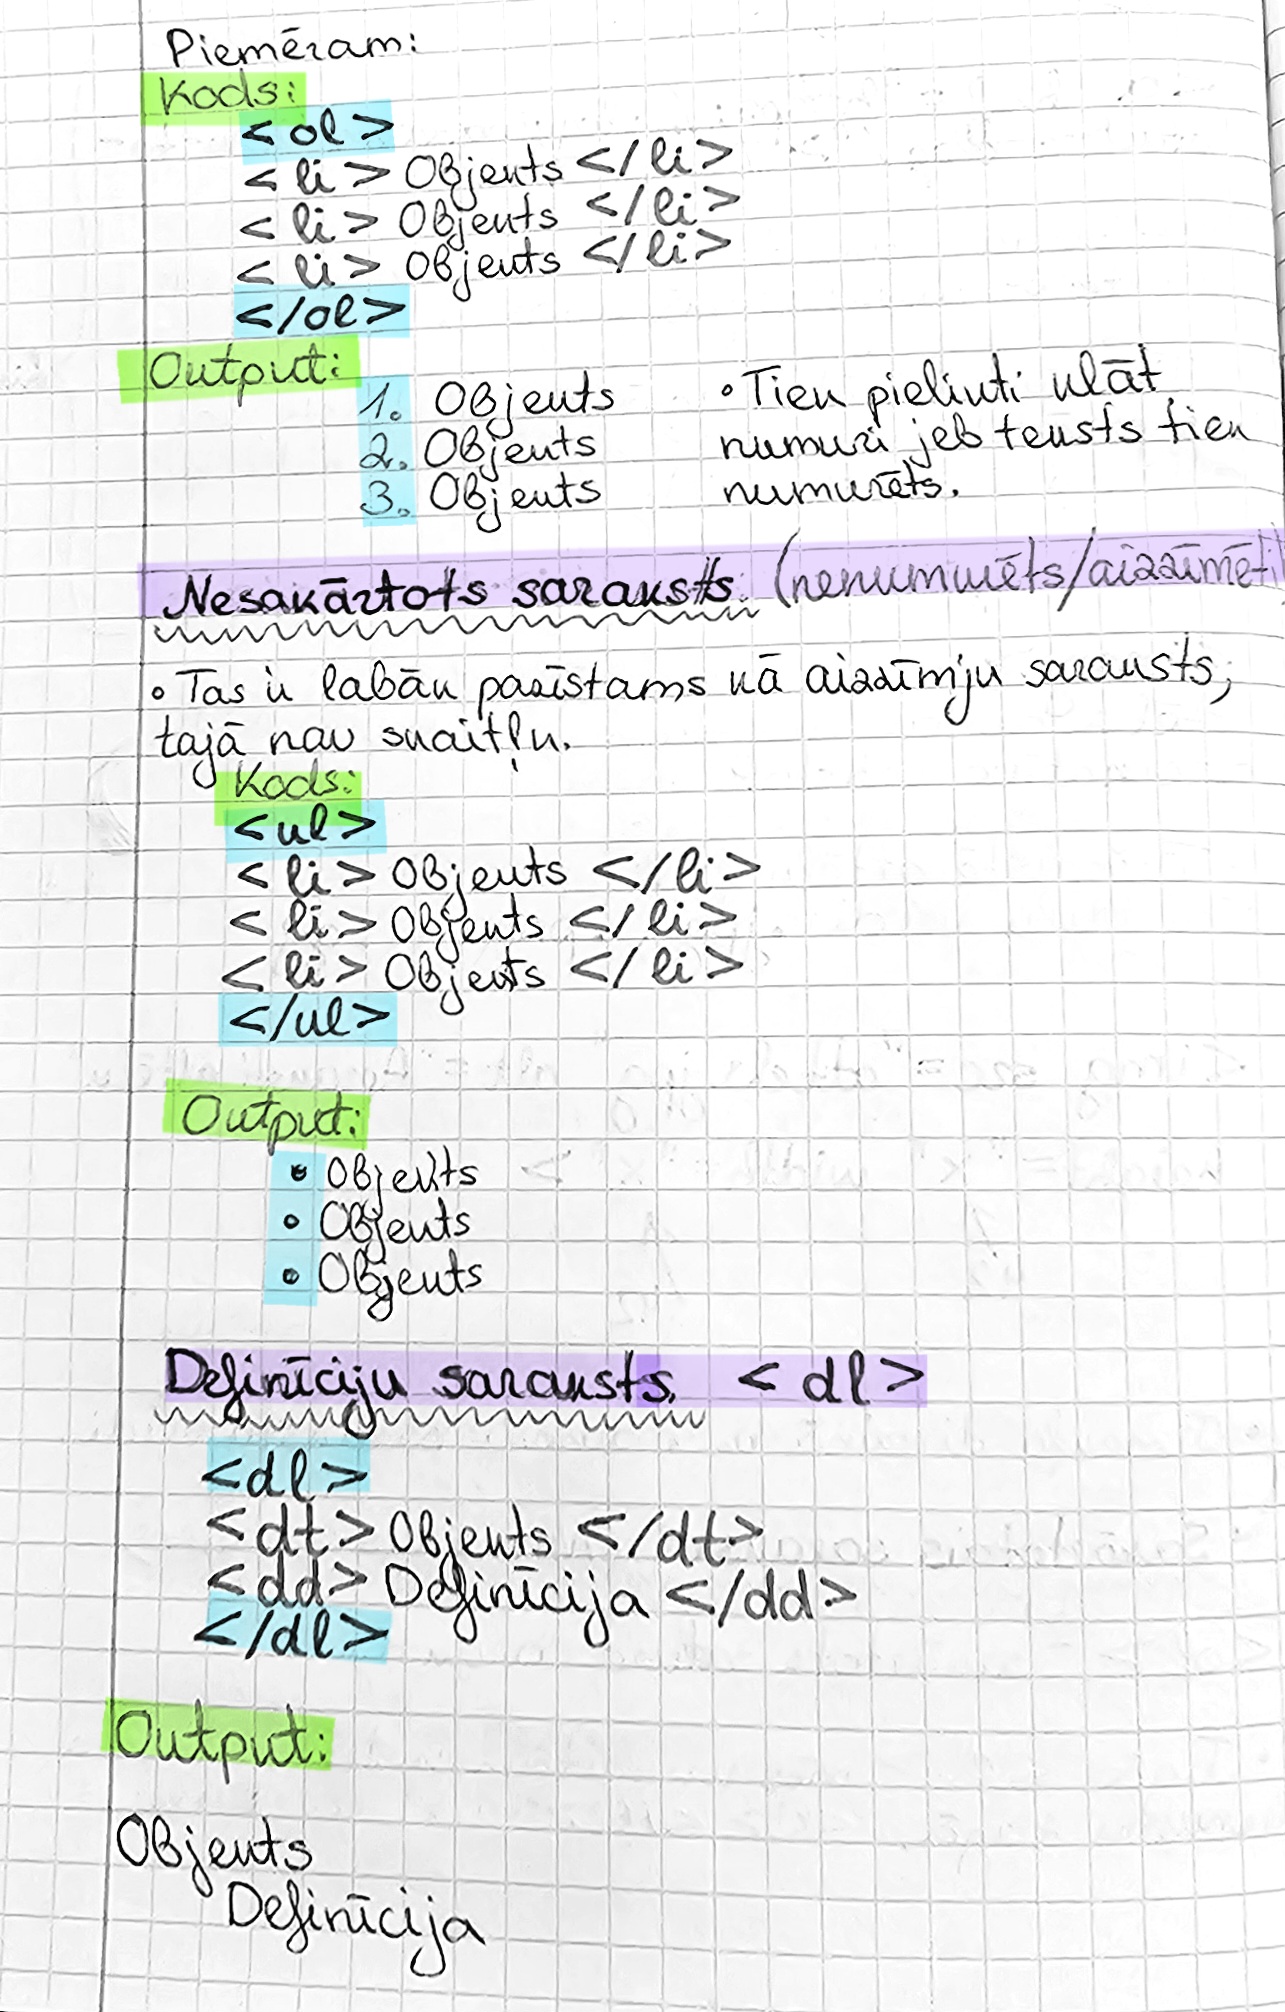 Piemēram:
Kods:
<ol>
<li> Objekts </li>
<li> Objekts </li>
<li> Objekts </li>
</ol>
Output:
1. Objekts
2. Objekts
3. Objekts
• Tiek pielikti klāt
numuri jeb teksts tiek
numurēts.
Nesakārtots saraksts. (nenumurēts/aizzīmēt
• Tas ir labāk pazīstams kā aizzīmju saraksts,
tajā nav skaitļu.
Kods:
<ul>
<li> Objekts </li>
<li> Objekts </li>
<li> Objekts </li>
</ul>
Output:
• Objekts
• Objekts
• Objekts
Definīciju saraksts. <dl>
<dl>
<dt> Objekts </dt>
<dd> Definīcija </dd>
</dl>
Output:
Objekts
Definīcija